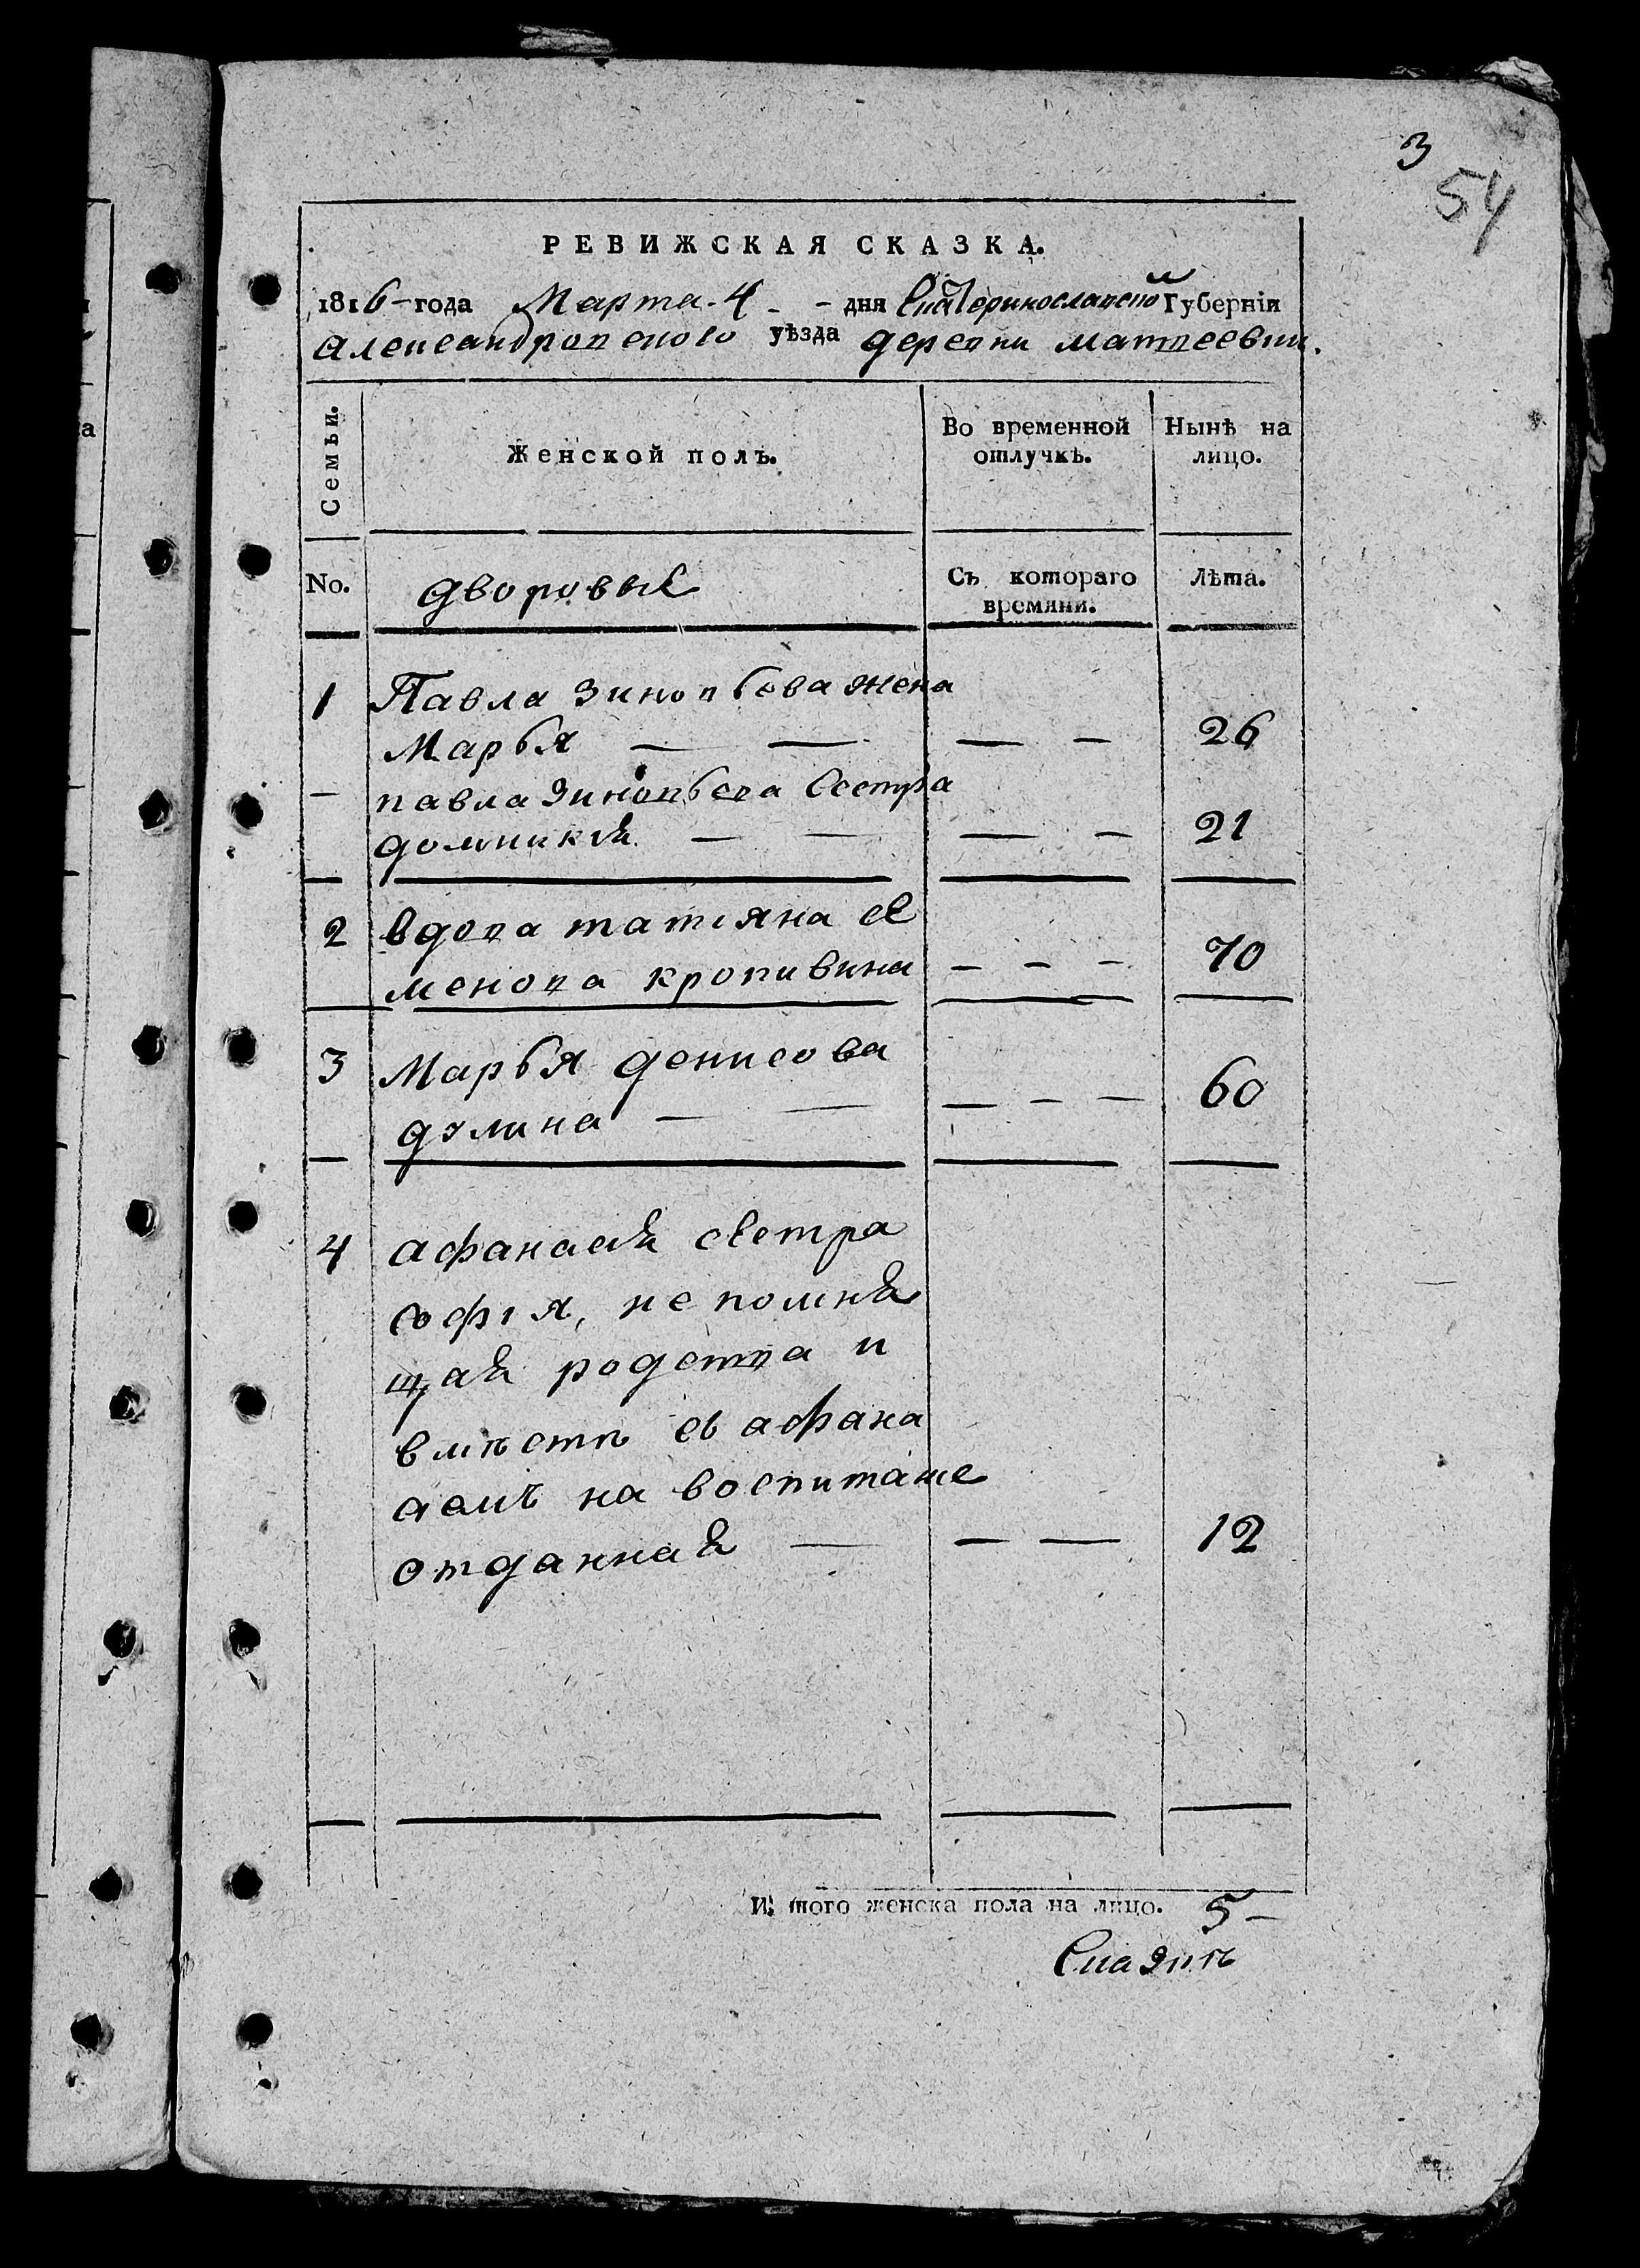 3
54
РЕВИЖСКАЯ СКАЗКА.
1816 года Марта 4 дня Екатеринославской Губерніи
александровского уѣзда деревни матвеевки.
Семьи.
Женской полъ.
Во временной отлучкѣ.
Нынѣ на лицо.
No.
дворовые
Съ котораго времяни.
Лѣта.
1 Павла Зиновьева жена
Марья — — — — 26
— павла Зиновьева Сестра
домникия — — — — 21
2 вдова татіяна се
менова кропивина — — — 70
3 Марья денисова
дулина — — — — — 60
4 афанасия сестра
софія, не помня
щая родства и
вмѣстѣ съ афана
сиемъ на воспитание
отданная — — — 12
Итого женска пола на лицо. 5 —